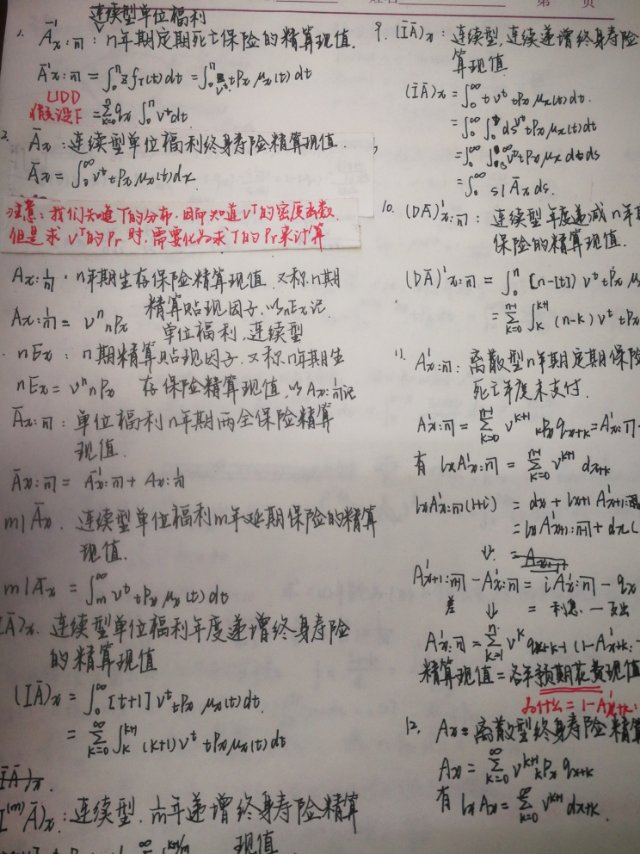 连续型单位福利
1. Ā¹x:n̅| : n年期定期死亡保险的精算现值.
Ā¹x:n̅| = ∫₀ⁿ z fT(t)dt = ∫₀ⁿ vᵗ tPx μx(t)dt
UDD
假设下 = qx ∫₀ⁿ vᵗdt
2. Āx : 连续型单位福利终身寿险精算现值.
Āx = ∫₀^∞ vᵗ tPx μx(t)dx.
注意: 我们知道T的分布.因而知道vᵀ的密度函数.
但是求vᵀ的Pr时,需要化为求T的Pr来计算
Ax:n̅|¹ : n年期生存保险精算现值.又称n期
精算贴现因子.以nEx记.
Ax:n̅|¹ = vⁿ nPx
单位福利.连续型
nEx : n期精算贴现因子.又称n年期生
nEx = vⁿ nPx 存保险精算现值,以Ax:n̅|¹记
Āx:n̅| : 单位福利n年期两全保险精算
现值.
Āx:n̅| = Ā¹x:n̅| + Ax:n̅|¹
m|Āx. 连续型单位福利m年延期保险的精算
现值.
m|Āx = ∫ₘ^∞ vᵗ tPx μx(t)dt
IĀ)x. 连续型单位福利年度递增终身寿险
的精算现值
(IĀ)x = ∫₀^∞ [t+1] vᵗ tPx μx(t)dt.
= Σₖ₌₀^∞ ∫ₖ^(k+1) (k+1)vᵗ tPx μx(t)dt
I⁽ᵐ⁾Ā)x : 连续型.m年递增终身寿险精算
现值
9. (ĪĀ)x : 连续型,连续递增终身寿险
算现值
(ĪĀ)x = ∫₀^∞ t vᵗ tPx μx(t)dt.
= ∫₀^∞ ∫₀ᵗ ds vᵗ tPx μx(t)dt
= ∫₀^∞ ∫ₛ^∞ vᵗ tPx μx dt ds
= ∫₀^∞ s|Āx ds.
10. (DĀ)¹x:n̅| : 连续型年度递减n年
保险的精算现值.
(DĀ)¹x:n̅| = ∫₀ⁿ [n-[t]] vᵗ tPx μ
= Σₖ₌₀ⁿ⁻¹ ∫ₖ^(k+1) (n-k) vᵗ tPx
11. A¹x:n̅| : 离散型n年期定期保险
死亡年度末支付.
A¹x:n̅| = Σₖ₌₀ⁿ⁻¹ vᵏ⁺¹ kPx qx+k = A¹x:n̅|
有 lxA¹x:n̅| = Σₖ₌₀ⁿ⁻¹ vᵏ⁺¹ dx+k
lxA¹x:n̅|(1+i) = dx + lx+1 A¹x+1:
= lxA¹x+1:n̅| + dx(
A¹x+1:n̅| - A¹x:n̅| = iA¹x:n̅| - qx
差 ⇓ = 利息 - 支出
A¹x:n̅| = Σₖ₌₁ⁿ vᵏ qx+k-1 (1-A¹x+k:
精算现值 = 各年预期花费现值
为什么 = 1-A¹x+k:
12. Ax = 离散型终身寿险精算
Ax = Σₖ₌₀^∞ vᵏ⁺¹ kPx qx+k
有 lxAx = Σₖ₌₀^∞ vᵏ⁺¹ dx+k.